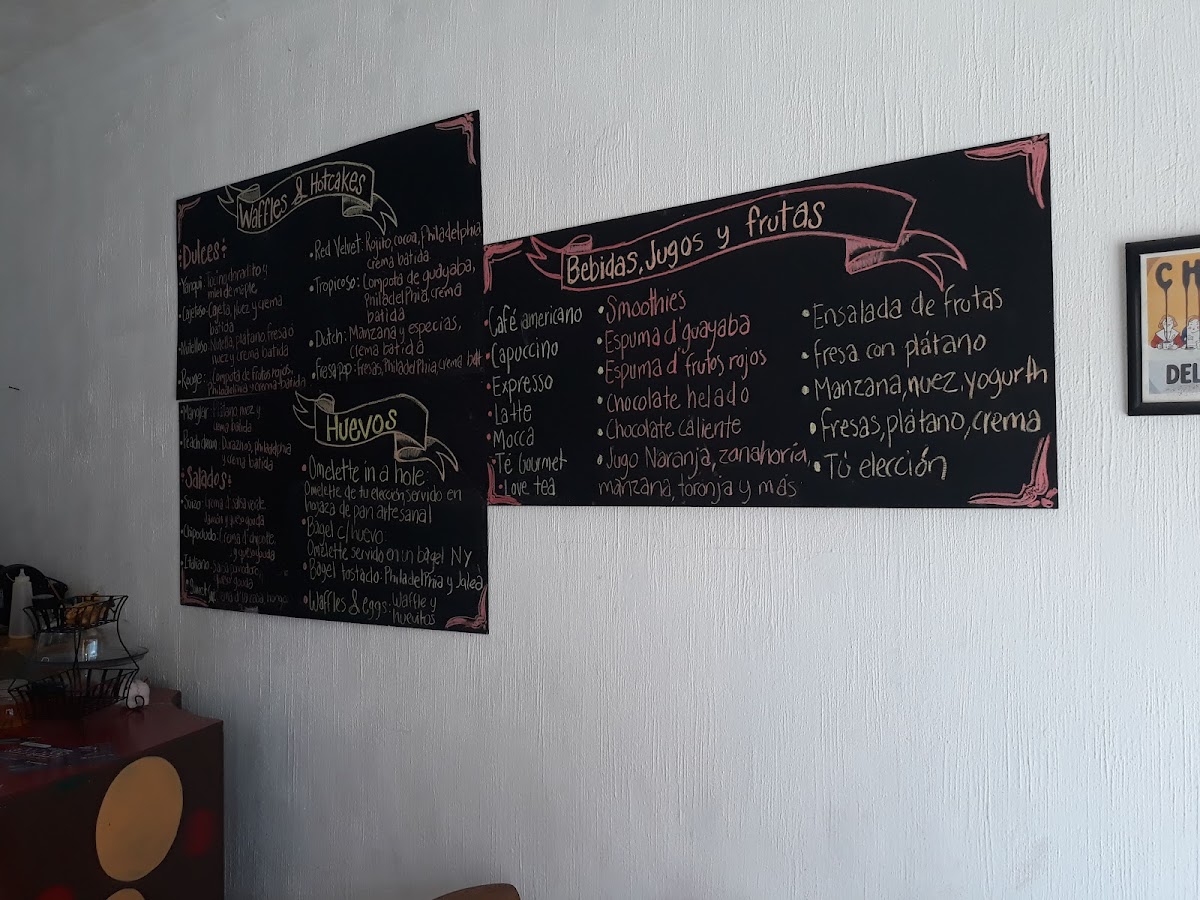 Waffles & Hotcakes
Dulces:
Yanqui: Tocino doradito y
miel de maple
Cajetoso: Cajeta, nuez y crema
batida
Nutelloso: Nutella, plátano, fresa o
nuez y crema batida
Rouge: Compota de frutos rojos,
Philadelphia y crema batida
nuez y
crema batida
Duraznos, philadelphia
y crema batida
Salados:
Suizo: crema d' salsa verde,
jamón y queso gouda
Chipocludo: Crema d' chipotle,
y queso gouda
Italiano:
queso gouda
• Red Velvet: Rojito, cocoa, Philadelphia
crema batida
• Tropicoso: Compota de guayaba,
Philadelphia, crema
batida
• Dutch: Manzana y especias,
crema batida
Fresa pop: Fresas, Philadelphia, crema bat
Huevos
• Omelette in a hole:
Omelette de tu elección servido en
hogaza de pan artesanal
• Bagel c/huevo:
Omelette servido en un bagel NY
• Bagel tostado: Philadelphia y Jalea
• Waffles & eggs: Waffle y
huevitos
Bebidas, Jugos y frutas
• Café americano
• Capuccino
• Expresso
• Latte
• Mocca
• Té Gourmet
• Love tea
• Smoothies
• Espuma d' guayaba
• Espuma d' frutos rojos
• Chocolate helado
• Chocolate caliente
• Jugo Naranja, zanahoria,
manzana, toronja y más
• Ensalada de frutas
• Fresa con plátano
• Manzana, nuez, yogurth
• Fresas, plátano, crema
• Tú elección
CH
DEL